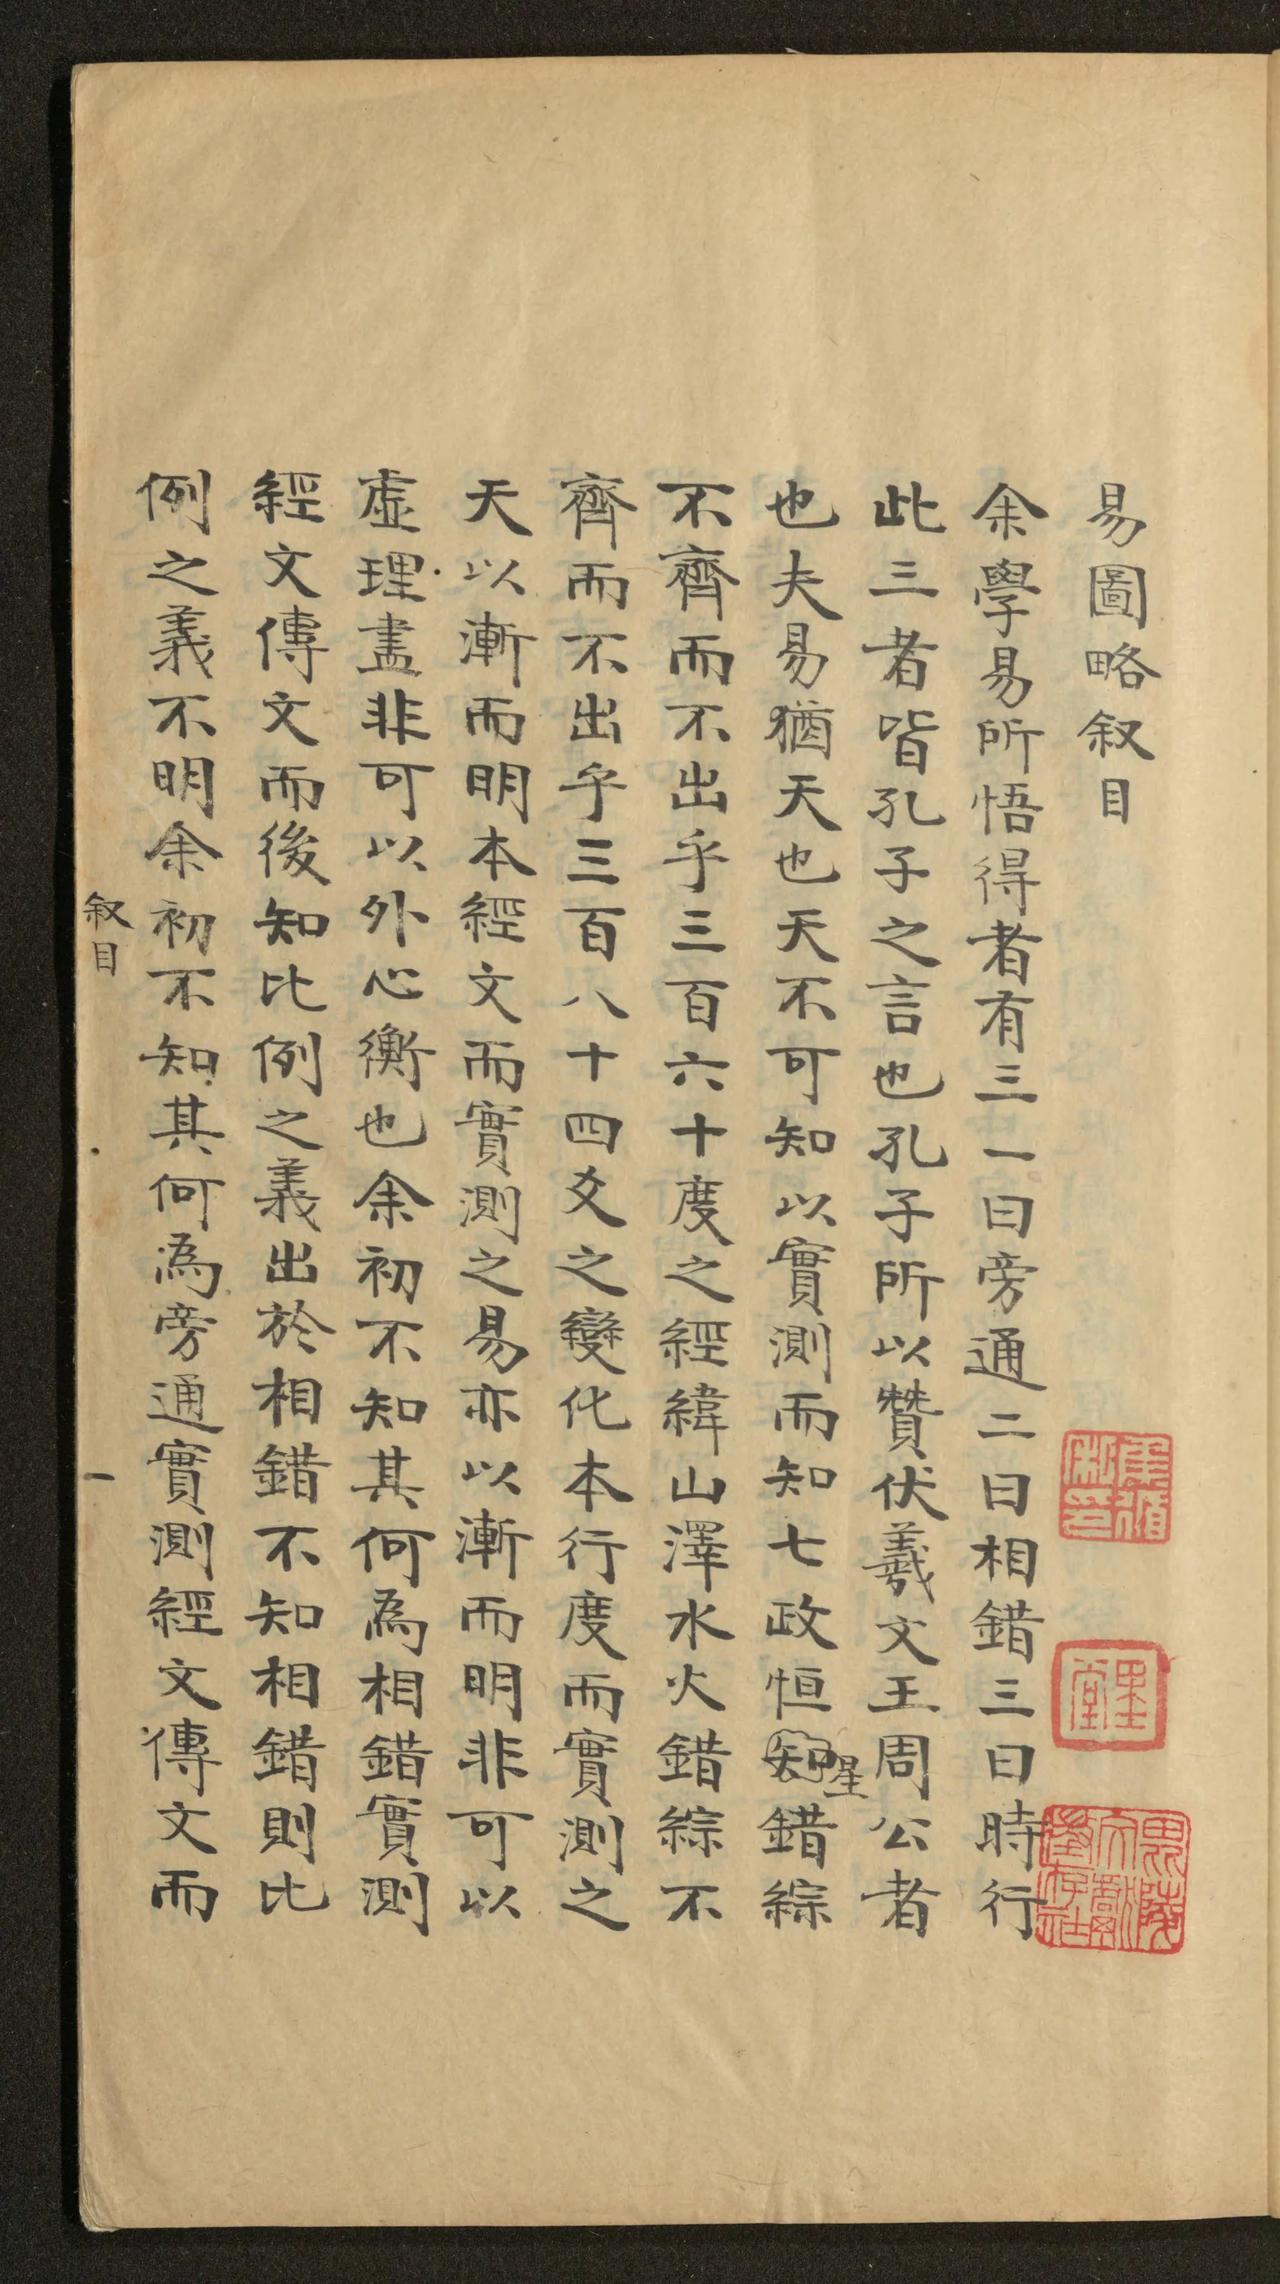 易圖略叙目
余學易所悟得者有三一曰旁通二曰相錯三曰時行
此三者皆孔子之言也孔子所以贊伏羲文王周公者
也夫易猶天也天不可知以實測而知七政恒知星錯綜
不齊而不出乎三百六十度之經緯山澤水火錯綜不
齊而不出乎三百八十四爻之變化本行度而實測之
天以漸而明本經文而實測之易亦以漸而明非可以
虛理盡非可以外心衡也余初不知其何為相錯實測
經文傳文而後知比例之義出於相錯不知相錯則比
例之義不明余初不知其何為旁通實測經文傳文而
叙目
一
焦循私印
里堂